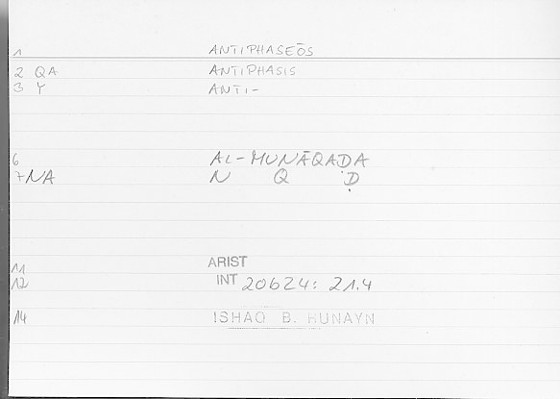 1 ANTIPHASEŌS
2 QA ANTIPHASIS
3 Y ANTI-
6 AL-MUNĀQAḌA
7 NA N Q Ḍ
11 ARIST
12 INT 20624: 21.4
14 ISHAQ B. HUNAYN